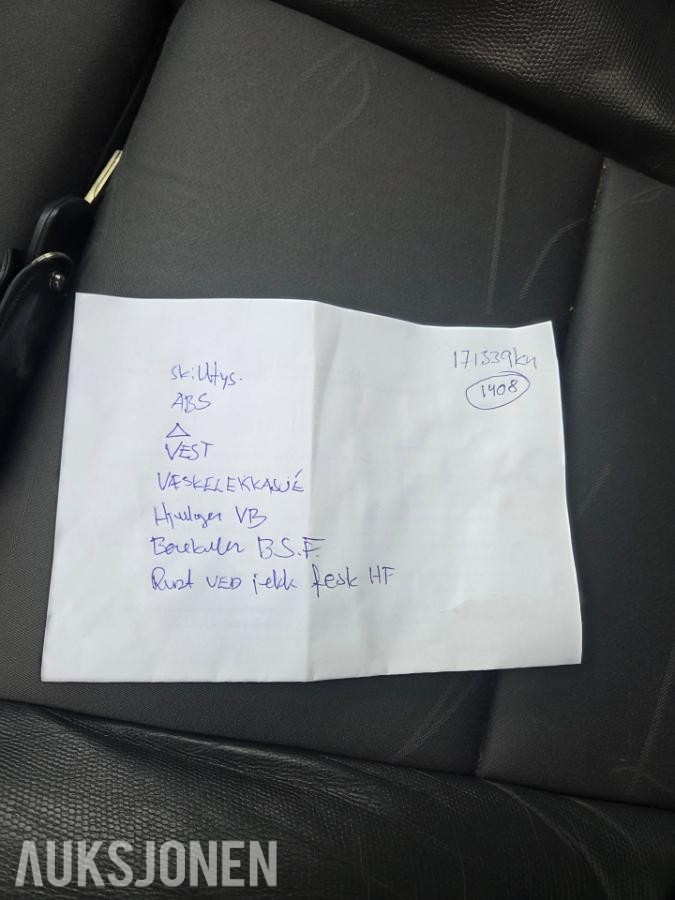 171539km
1408
skiltlys.
ABS
△
VEST
VÆSKELEKKASJÉ
Hjullager VB
Bærekuler B.S.F.
Rust VED jekk feste HF
AUKSJONEN